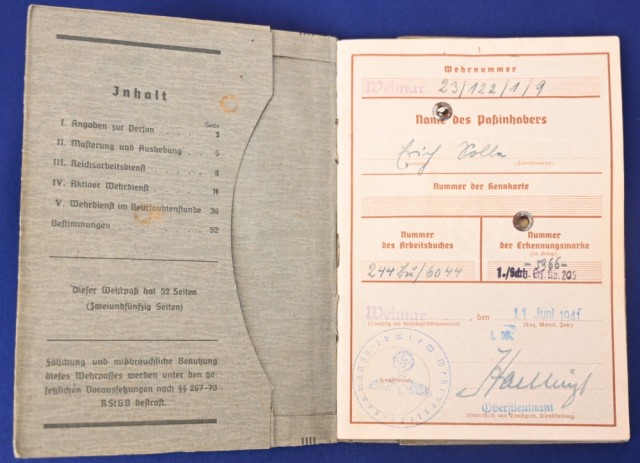 Inhalt
Seite
I. Angaben zur Person . . . . 3
II. Musterung und Aushebung . . 5
III. Reichsarbeitsdienst . . . . 8
IV. Aktiver Wehrdienst . . . . 11
V. Wehrdienst im Beurlaubtenstande 36
Bestimmungen . . . . 52
Dieser Wehrpaß hat 52 Seiten
(Zweiundfünfzig Seiten)
Fälschung und mißbräuchliche Benutzung
dieses Wehrpasses werden unter den ge-
setzlichen Voraussetzungen nach §§ 267-70
RStGB bestraft.
1
Wehrnummer
Weimar 23/122/1/9
Name des Paßinhabers
Erich
Nummer der Kennkarte
Nummer
des Arbeitsbuches
244 /6044
Nummer
der Erkennungsmarke
(im Kriege)
- 1266 -
1./Schtz. Ers. Batl. 205
Weimar, den 11. Juni 1941
(Tag, Monat, Jahr)
Oberstleutnant